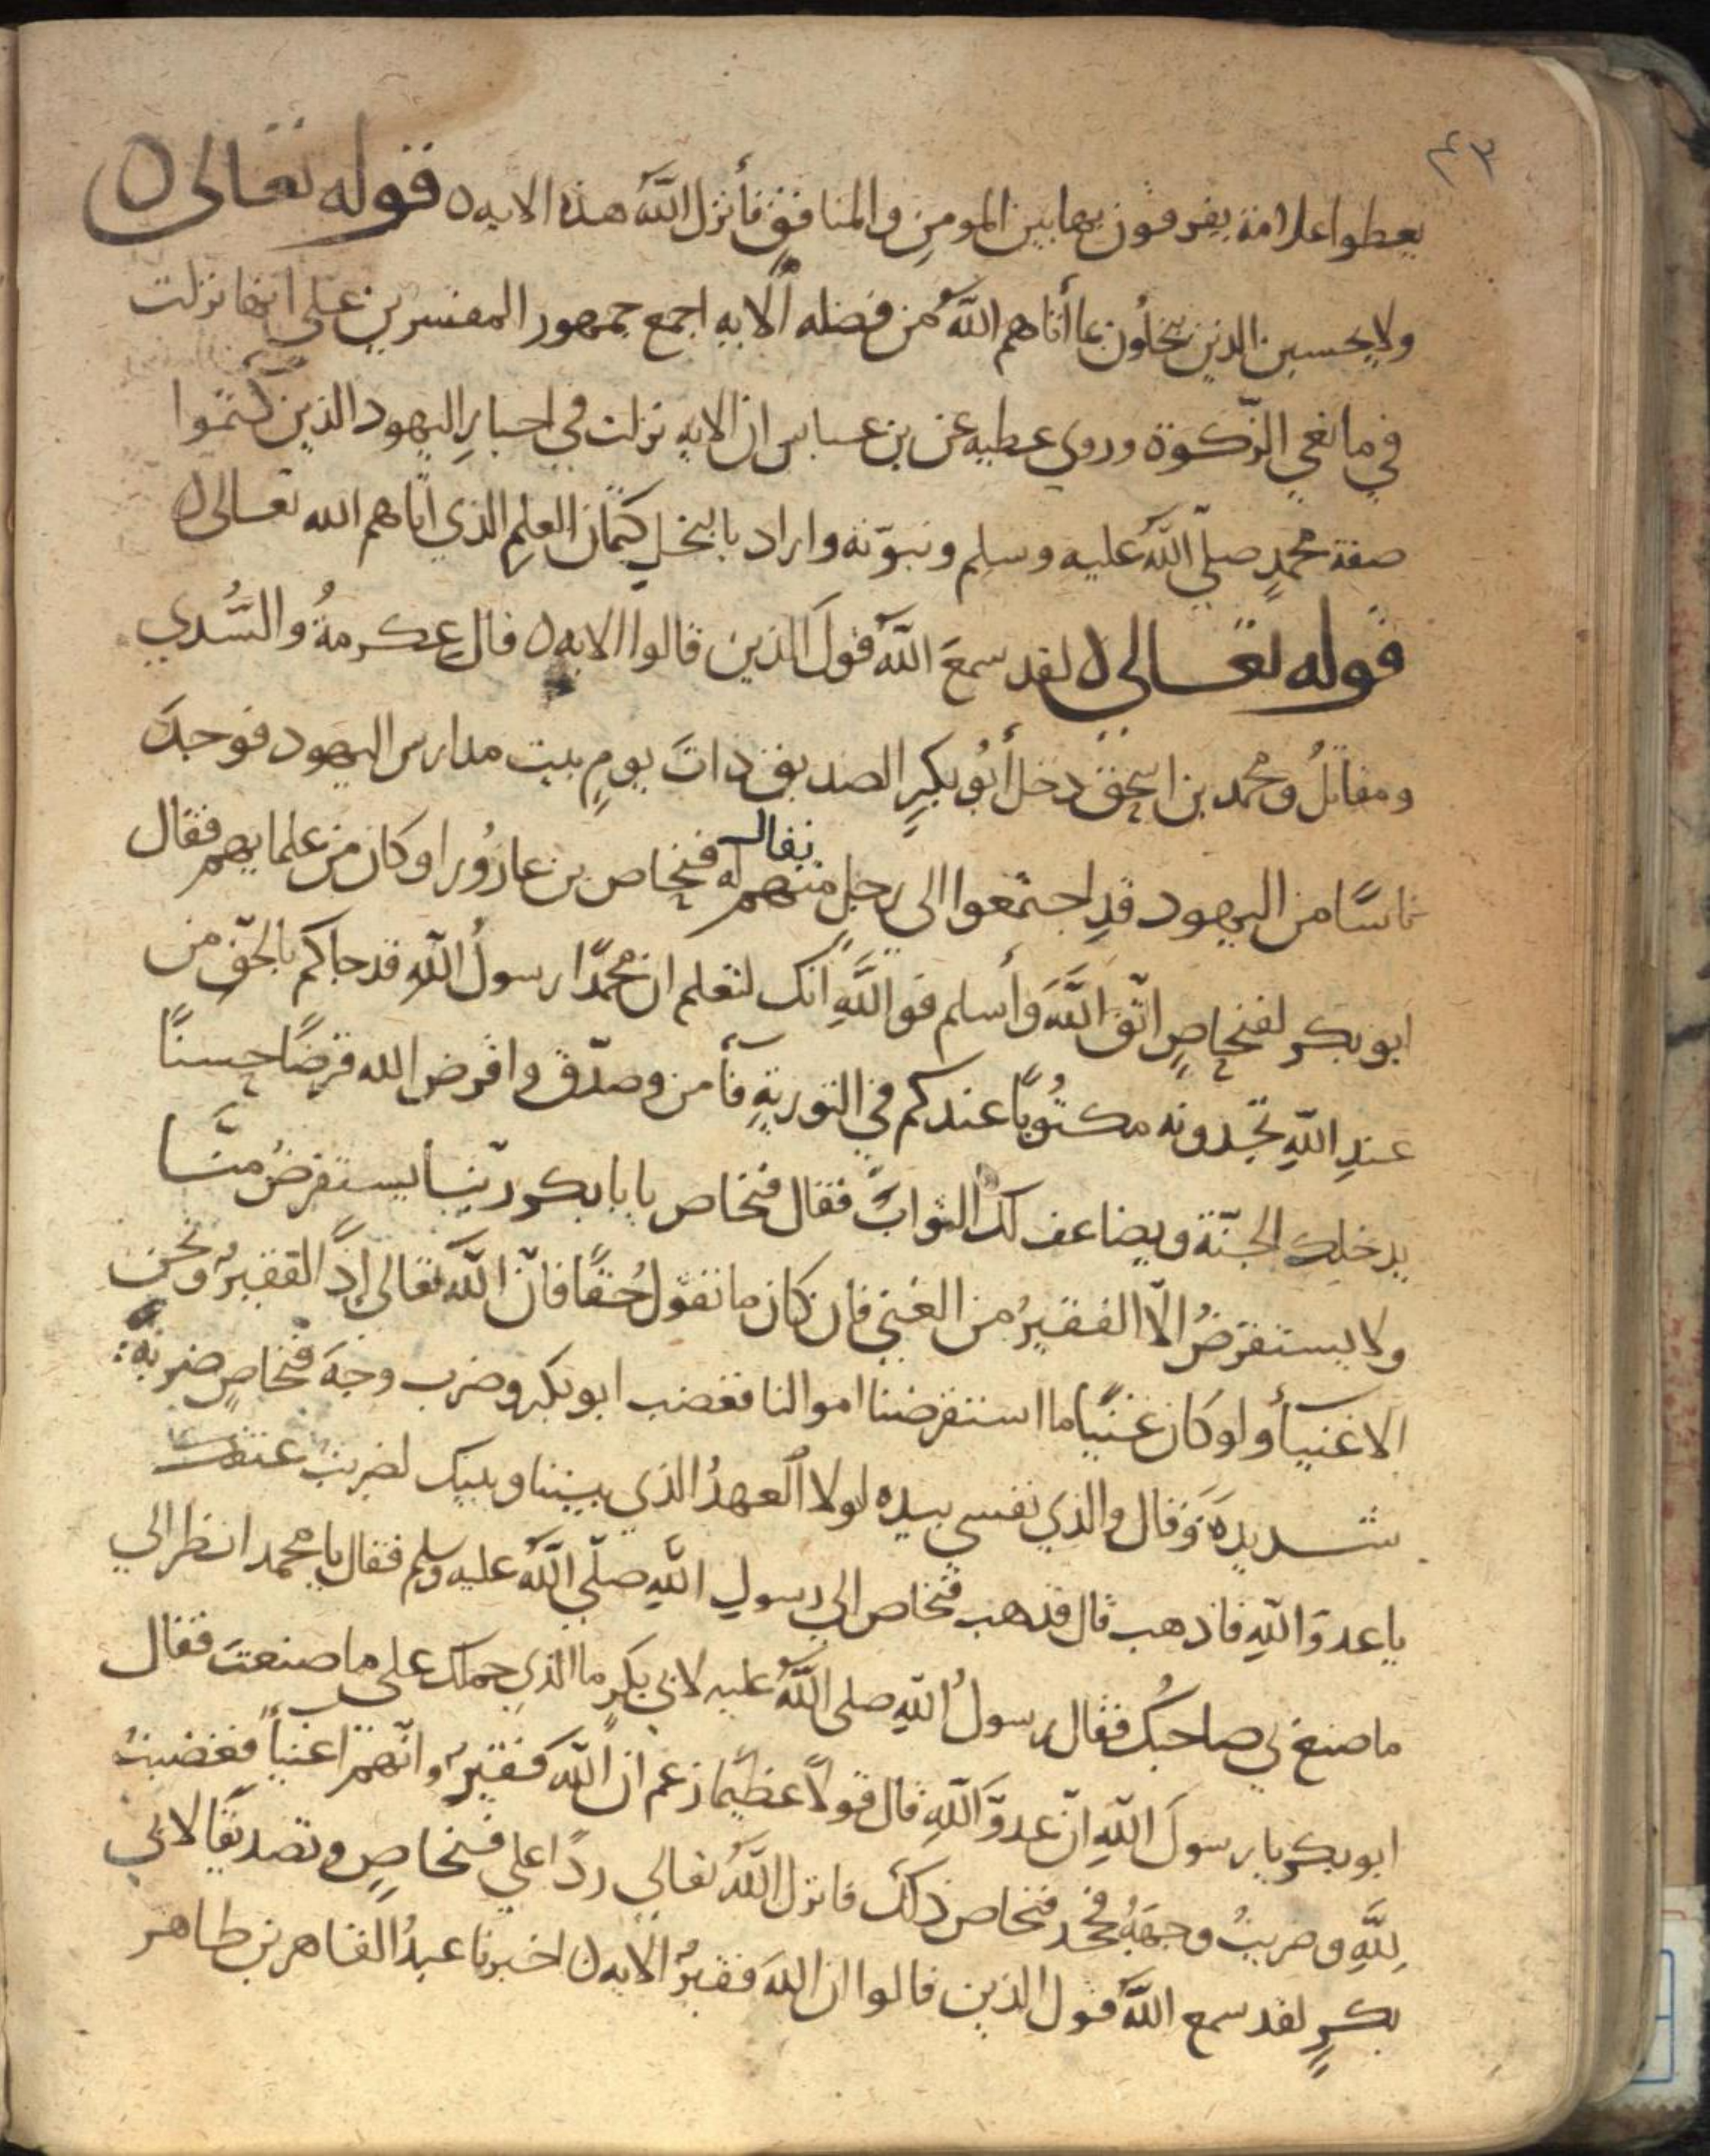 ٤٣
يعطوا علامة يفرقون بها بين المومن والمنافق فأنزل اللّه هذه الايه ٥ قوله تعالى ٥
ولا يحسبن الذين يبخلون بما أتاهم اللّه من فضله ألايه اجمع جمهور المفسرين على انها نزلت
في مانعي الزّكوة وروى عطيه عن بن عباس ان الايه نزلت في احبارِ اليهود الذين كتموا
صفة محمدٍ صلّى اللّه عليه وسلم ونبوّته واراد بالبخلِ كتمان العلمِ الذي اتاهم الله تعالى ٥
قوله تعالى ٥ لقد سمعَ اللّه قولَ الذين قالوا الايه ٥ قال عِكرمةُ والسُّدي
ومقاتلُ ومحمد بن اسحق دخل أبُو بكرٍ الصديق ذاتَ يومٍ بيت مدارس اليهود فوجدَ
ناسًا من اليهود قدِ اجتمعوا الى رجلٍ منهم يقال له فنحاص بن عازُورا وكان من علمايهم فقال
ابو بكر لفنحاصٍ اتّق اللَّهَ وأسلم فو اللَّهِ انّك لتعلم ان محمّدًا رسولُ اللّه قد جاكم بالحقّ من
عندِ اللّهِ تجدونه مكتُوبًا عندكم في التوريةِ فآمن وصدّق واقرض الله قرضًا حسنًا
يدخلك الجنّة ويضاعف لك الثوابَ فقال فنحاص يا با بكر ربّنا يستقرضُ منّا
ولا يستقرضُ الّا الفقيرُ من الغني فان كان ما تقول حُقًّا فانّ اللّه تعالى إذًا لفقيرٌ ونحن
الاغنيأ ولو كان غنيًّا ما استقرضنا اموالنا فغضب ابو بكر وضرب وجهَ فنحاصٍ ضربةً
شديدةً وقال والذي نفسي بيده لولا العهدُ الذي بيننا وبينك لضربت عنقك
يا عدوَّ اللّهِ فاذهب قال فذهب فنحاص الى رسولِ اللّهِ صلّى اللّه عليه وسلم فقال يا محمد انظر الي
ما صنع بي صاحبُك فقال رسولُ اللّهِ صلى اللَّهُ عليه لابي بكرٍ ما الذي حملك على ما صنعتَ فقال
ابو بكر يا رسولَ اللّهِ انّ عدوَّ اللّهِ قال قولًا عظيمًا زعم ان اللّه فقيرٌ وانّهم اغنيأ فغضبتُ
لِلَّهِ وضربتُ وجهَهُ فجحد فنحاص ذلك فانزل اللّهُ تعالى ردًّا علي فنحاصٍ وتصديقًا لابي
بكرٍ لقد سمع اللّه قول الذين قالوا ان اللّهَ فقيرٌ الايه ٥ اخبرنا عبدُ القاهر بن طاهر